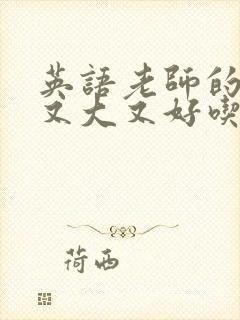 英語老師的
又大又好喫
荷西